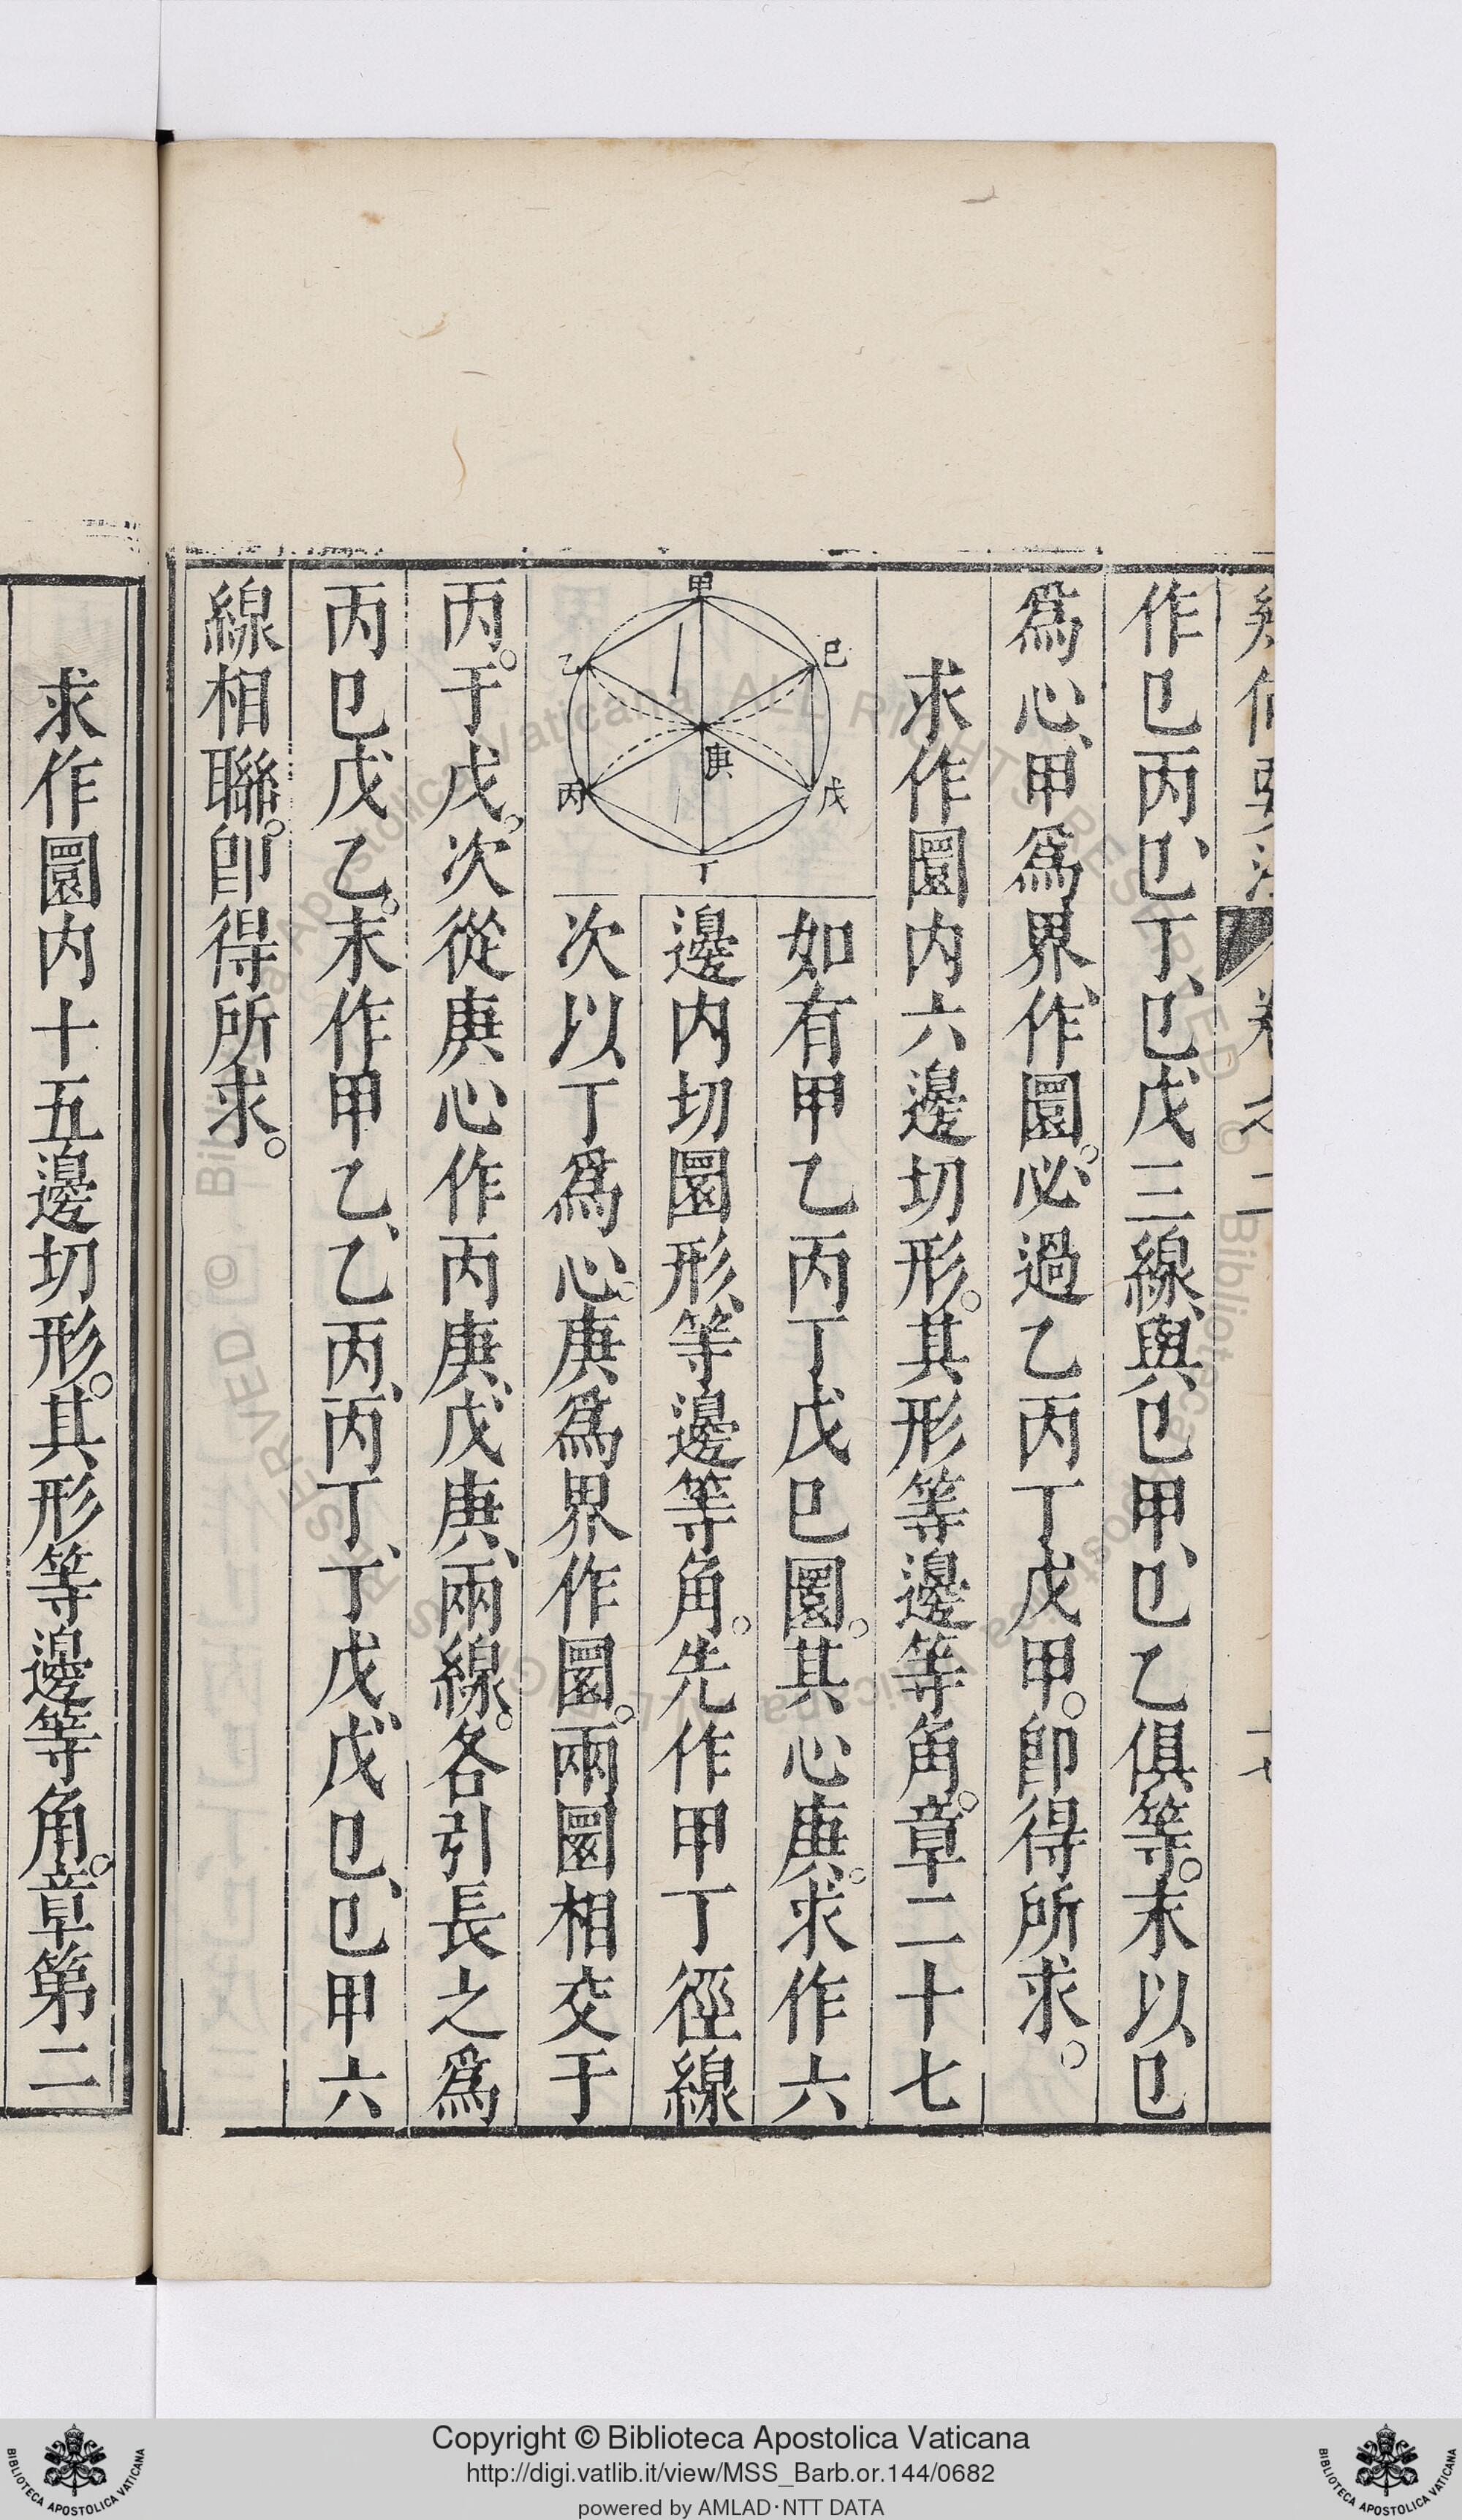 作已丙、已丁、已戊三線、與已甲、已乙俱等。末以已
爲心、甲爲界、作圜。必過乙丙丁戊甲。卽得所求。
求作圜内六邊切形。其形等邊等角。章二十七
甲
已
乙
庚
丙
戊
丁
如有甲乙丙丁戊巳圜。其心庚。求作六
邊内切圜形、等邊等角。先作甲丁徑線
次以丁爲心。庚爲界作圜。兩圜相交于
丙。于戊。次從庚心作丙庚、戊庚、兩線。各引長之爲
丙已戊乙。末作甲乙、乙丙、丙丁、丁戊、戊已、已甲六
線相聯。卽得所求。
求作圜内十五邊切形。其形等邊等角。章第二
Copyright © Biblioteca Apostolica Vaticana
http://digi.vatlib.it/view/MSS_Barb.or.144/0682
powered by AMLAD·NTT DATA